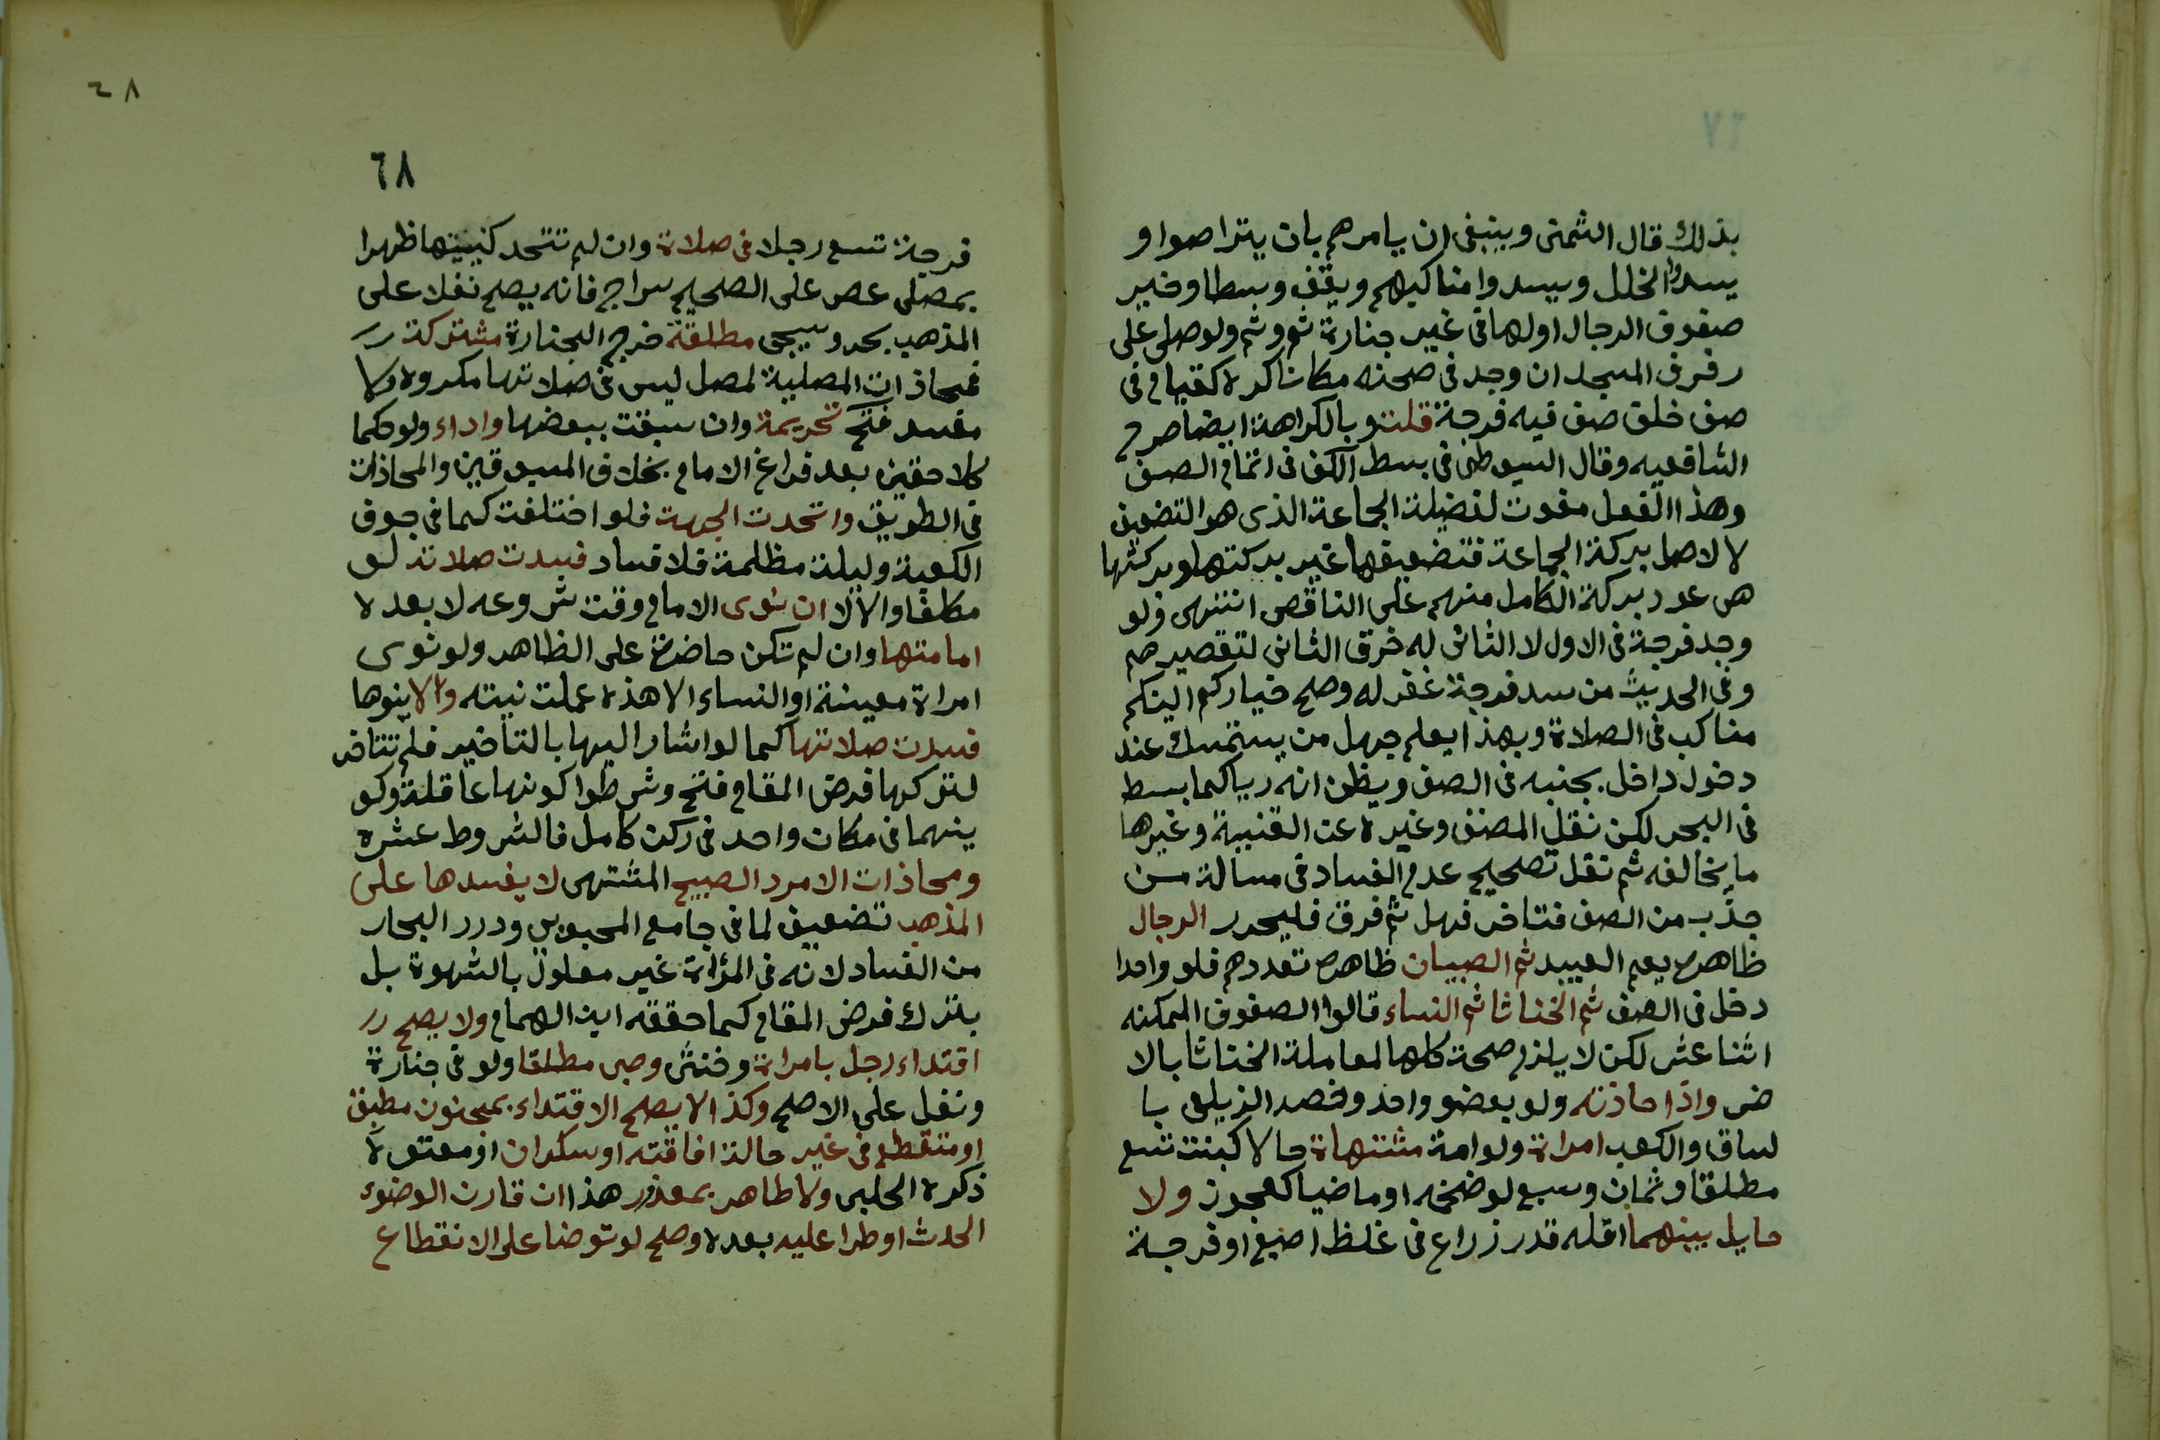 بذلك قال الشمنى وينبغى ان يامرهم بان يتراصوا و
يسدوا الخلل ويسدوا مناكبهم ويقف وسطا وخير
صفوف الرجال اولها فى غير جنازة ثم وثم ولو صلى على
رفرف المسجد ان وجد فى صحنه مكانا كره كقيام فى
صف خلف صف فيه فرجة قلت وبالكراهة ايضا صرح
الشافعيه وقال السيوطى فى بسط الكف فى اتمام الصف
وهذا الفعل مفوت لفضيلة الجماعة الذى هو التضعيف
لا لاصل بركة الجماعة فتضعيفها غير بركتها وبركتها
هى عود بركة الكامل منهم على الناقص انتهى ولو
وجد فرجة فى الاول لا الثانى له خرق الثانى لتقصيرهم
وفى الحديث من سد فرجة غفر له وصح خياركم الينكم
مناكب فى الصلاة وبهذا يعلم جهل من يستمسك عند
دخول داخل بجنبه فى الصف ويظن انه ريا كما بسط
فى البحر لكن نقل المصنف وغيره عن القنية وغيرها
ما يخالفه ثم نقل تصحيح عدم الفساد فى مسالة من
جذب من الصف فتاخر فهل ثم فرق فليحرر الرجال
ظاهره يعم العبيد ثم الصبيان ظاهره تعددهم فلو واحدا
دخل فى الصف ثم الخناثا ثم النساء قالوا الصفوف الممكنه
اثنا عشر لكن لا يلزم صحة كلها لمعاملة الخناثا بالا
ضر واذا حاذته ولو بعضو واحد وخصه الزيلعى با
لساق والكعب امراة ولو امة مشتهاة حالا كبنت تسع
مطلقا وثمان وسبع لو ضخمه او ماضيا كعجوز ولا
حايل بينهما اقله قدر زراع فى غلظ اصبع او فرجة
٢٨
٦٨
فرجة تسع رجلا فى صلاة وان لم تتحد كنيتها ظهرا
بمصلى عصر على الصحيح سراج فانه يصح نفلا على
المذهب بحر وسيجى مطلقة خرج الجنازة مشتركة
فمحاذات المصلية لمصل ليس فى صلاتها مكروه ولا
مفسد فتح تحريمة وان سبقت ببعضها واداء ولو حكما
كلاحقين بعد فراغ الامام بخلاف المسبوقين والمحاذات
فى الطريق واتحدت الجهة فلو اختلفت كما فى جوف
الكعبة وليلة مظلمة فلا فساد فسدت صلاته لو
مكلفا والا لا ان نوى الامام وقت شروعه لا بعده
امامتها وان لم تكن حاضرة على الظاهر ولو نوى
امراة معينة او النساء الا هذه عملت نيته والا ينوها
فسدت صلاتها كما لو اشار اليها بالتاخير فلم تتاخر
لتركها فرض المقام فتح وشرطوا كونها عاقلة وكو
ينهما فى مكان واحد فى ركن كامل فالشروط عشره
ومحاذات الامرد الصبيح المشتهى لا يفسدها على
المذهب تضعيف لما فى جامع المحبوبى ودرر البحار
من الفساد لانه فى المرأة غير معلول بالشهوة بل
بترك فرض المقام كما حققه ابن الهمام ولا يصح
اقتداء رجل بامراة وخنثى وصبى مطلقا ولو فى جنازة
ونفل على الاصح وكذا لا يصح الاقتداء بمجنون مطبق
او متقطع فى غير حالة افاقته او سكران او معتوه
ذكره الحلبى ولا طاهر بمعذور هذا ان قارن الوضوء
الحدث او طرا عليه بعده وصح لو توضا على الانقطاع